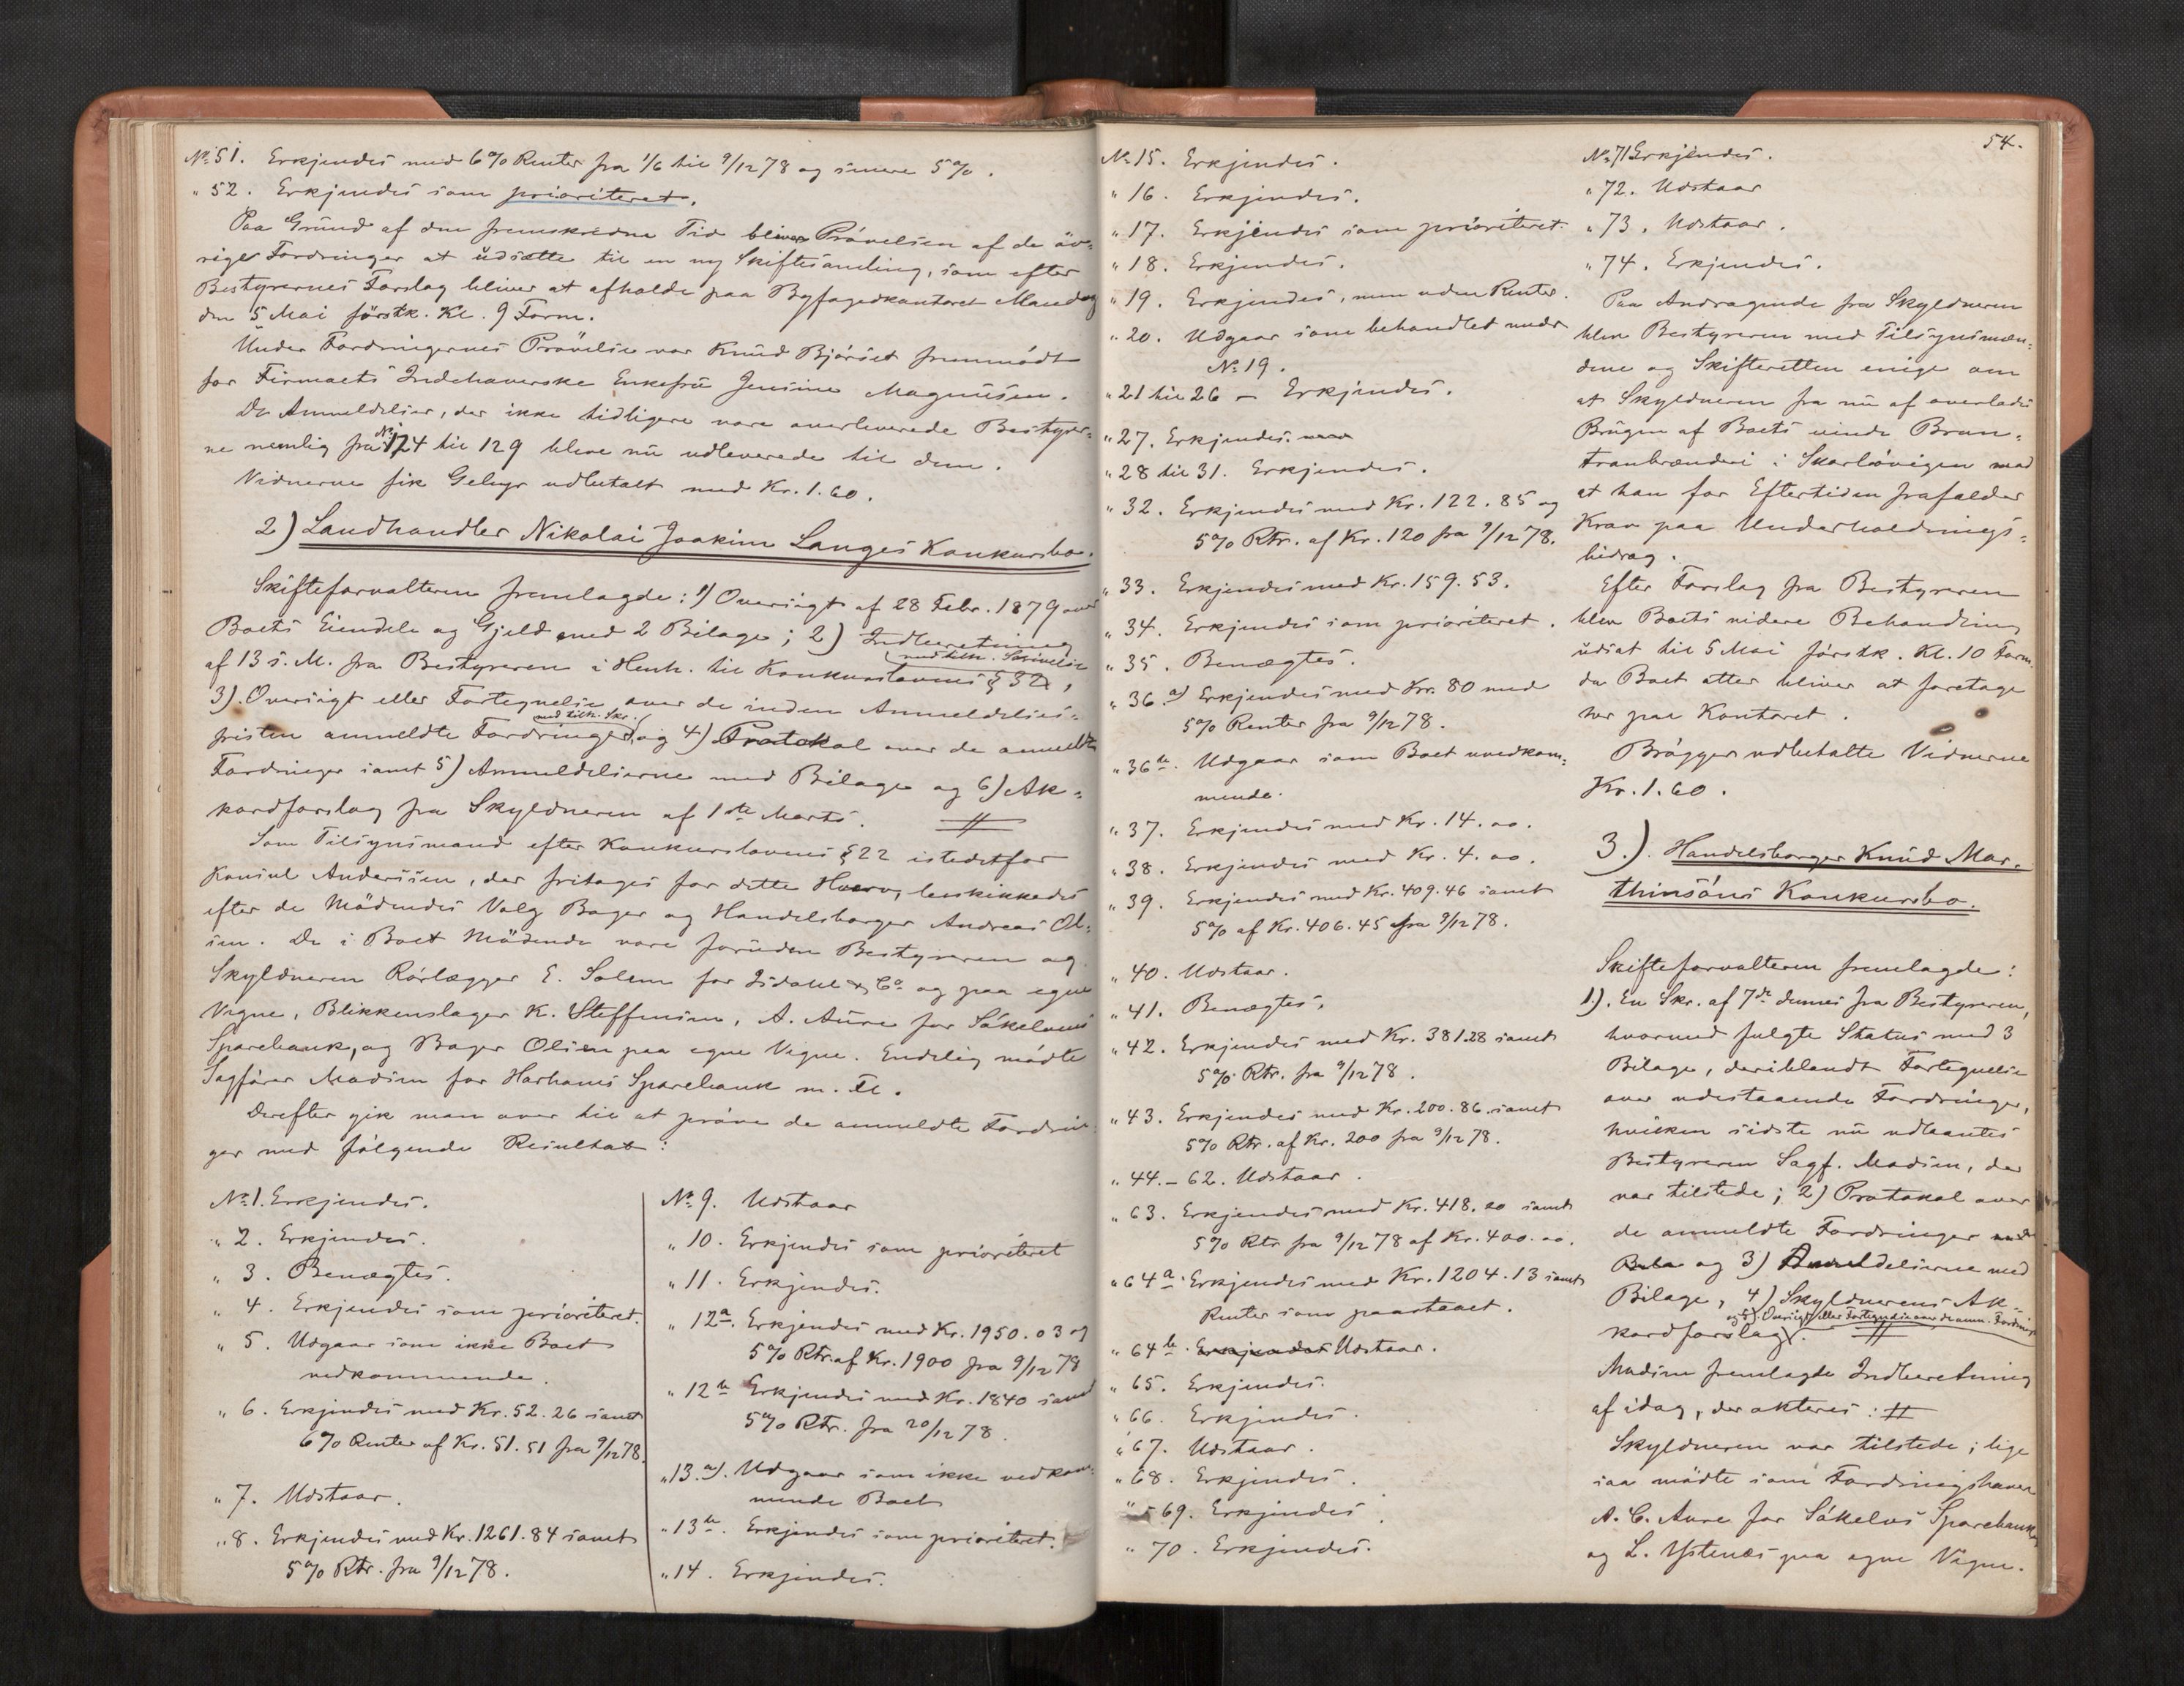 No 51. Erkjendes med 6% Renter fra 1/6 til 9/12 78 og senere 5%.
" 52. Erkjendes som prioriteret.
Paa Grund af den fremskredne Tid bliver Prövelsen af de öv-
rige Fordringer at udsætte til en ny Skiftesamling, som efter
Bestyrernes Forslag bliver at afholde paa Byfogedkontoret Mandag
den 5 Mai förstk. Kl. 9 Form.
Under Fordringernes Prövelse var Knud Bjørset fremmödt
for Firmaets Indehaverske Enkefru Jensine Magnusen.
De Anmeldelser, der ikke tidligere vare overleverede Bestyrer-
ne nemlig fra No 124 til 129 bleve nu udleverede til dem.
Vidnerne fik Gebyr udbetalt med Kr. 1.60.
2) Landhandler Nikolai Joakim Langes Konkursbo.
Skifteforvalteren fremlagde: 1) Oversigt af 28 Febr. 1879 over
Boets Eiendele og Gjeld med 2 Bilage; 2) Indberetning
med tilh. Skrivelse
af 13 s. M. fra Bestyreren i Henh. til Konkurslovens § 32,
3). Oversigt eller Fortegnelse over de inden Anmeldelses-
med tilh. Skr.
fristen anmeldte Fordringer, og 4) Protokol over de anmeldte
Fordringer samt 5) Anmeldelserne med Bilage og 6) Ak-
kordforslag fra Skyldneren af 1ste Marts.
Som Tilsynsmand efter Konkurslovens § 22 istedetfor
Konsul Anderssen, der fritages for dette Hverv, beskikkedes
efter de Mödendes Valg Bager og Handelsborger Andreas Ol-
sen. De i Boet Mödende vare foruden Bestyreren og
Skyldneren Rörlægger E. Solem for Isdahl & Co og paa egne
Vegne, Blikkenslager K. Steffensen, A. Aure for Søkelvens
Sparebank, og Bager Olsen paa egne Vegne. Endelig mødte
Sagförer Madsen for Harhams Sparebank m. Fl.
Derefter gik man over til at pröve de anmeldte Fordrin-
ger med følgende Resultat:
No 1. Erkjendes.
" 2. Erkjendes.
" 3. Benægtes.
" 4. Erkjendes som prioriteret.
" 5. Udgaar som ikke Boet
vedkommende.
" 6. Erkjendes med Kr. 52.26 samt
6% Renter af Kr. 51.51 fra 9/12 78.
" 7. Udstaar.
" 8. Erkjendes med Kr. 1261.84 samt
5% Rtr. fra 9/12 78.
No 9. Udstaar
" 10. Erkjendes som prioriteret
" 11. Erkjendes.
" 12a. Erkjendes med Kr. 1950.03 og
5% Rtr. af Kr. 1900 fra 9/12 78
" 12b Erkjendes med Kr. 1840 samt
5% Rtr. fra 20/12 78.
" 13.a). Udgaar som ikke vedkom-
mende Boet
" 13b. Erkjendes som prioriteret.
" 14. Erkjendes.
No 15. Erkjendes.
" 16. Erkjendes.
" 17. Erkjendes som prioriteret.
" 18. Erkjendes.
" 19. Erkjendes, men uden Renter.
" 20. Udgaar som behandlet under
No 19.
" 21 til 26 – Erkjendes.
" 27. Erkjendes.
" 28 til 31. Erkjendes.
" 32. Erkjendes med Kr. 122.85 og
5% Rtr. af Kr. 120 fra 9/12 78.
" 33. Erkjendes med Kr. 159.53.
" 34. Erkjendes som prioriteret.
" 35. Benægtes.
" 36.a) Erkjendes med Kr. 80 med
5% Renter fra 9/12 78.
" 36b. Udgaar som Boet uvedkom-
mende.
" 37. Erkjendes med Kr. 14.00.
" 38. Erkjendes med Kr. 4.00.
" 39. Erkjendes med Kr. 409.46 samt
5% af Kr. 406.45 fra 9/12 78.
" 40. Udstaar.
" 41. Benægtes.
" 42. Erkjendes med Kr. 381.28 samt
5% Rtr. fra 9/12 78.
" 43. Erkjendes med Kr. 200.86 samt
5% Rtr. af Kr. 200 fra 9/12 78.
" 44.–62. Udstaar.
" 63. Erkjendes med Kr. 418.20 samt
5% Rtr. fra 9/12 78 af Kr. 400.00.
" 64a. Erkjendes med Kr. 1204.13 samt
Renter som paastaaet.
" 64b. Erkjendes Udstaar.
" 65. Erkjendes.
" 66. Erkjendes.
" 67. Udstaar.
" 68. Erkjendes.
" 69. Erkjendes
" 70. Erkjendes.
54.
No 71 Erkjendes.
" 72. Udstaar
" 73. Udstaar.
" 74. Erkjendes.
Paa Andragende fra Skyldneren
blev Bestyreren med Tilsynsmæn-
dene og Skifteretten enige om
at Skyldneren fra nu af overlades
Brugen af Boets Bran-
tranbrænderi i mod
at han for Eftertiden frafalder
Krav paa Underholdnings-
bidrag.
Efter Forslag fra Bestyreren
blev Boets videre Behandling
udsat til 5 Mai förstk. Kl. 10 Form.
da Boet atter bliver at foretage
her paa Kontoret.
Brögger udbetalte Vidnerne
Kr. 1.60.
3.). Handelsborger Knud Mar-
thinsöns Konkursbo.
Skifteforvalteren fremlagde:
1.). En Skr. af 7de dennes fra Bestyreren,
hvormed fulgte Status med 3
Bilage, deriblandt Fortegnelse
over udestaaende Fordringer,
hvilken sidste nu udlaantes
Bestyreren Sagf. Madsen, der
var tilstede; 2) Protokol over
de anmeldte Fordringer
og 3) Anmeldelserne med
Bilage, 4) Skyldnerens Ak-
og 5). Oversigt eller Fortegnelse over de anm. Fordringer
kordforslag.
Madsen fremlagde Indberetning
af idag, der akteres:
Skyldneren var tilstede; lige
saa mødte som Fordringshaver
A. C. Aure for Søkelvs Sparebank,
og L. Ystenæs paa egne Vegne.